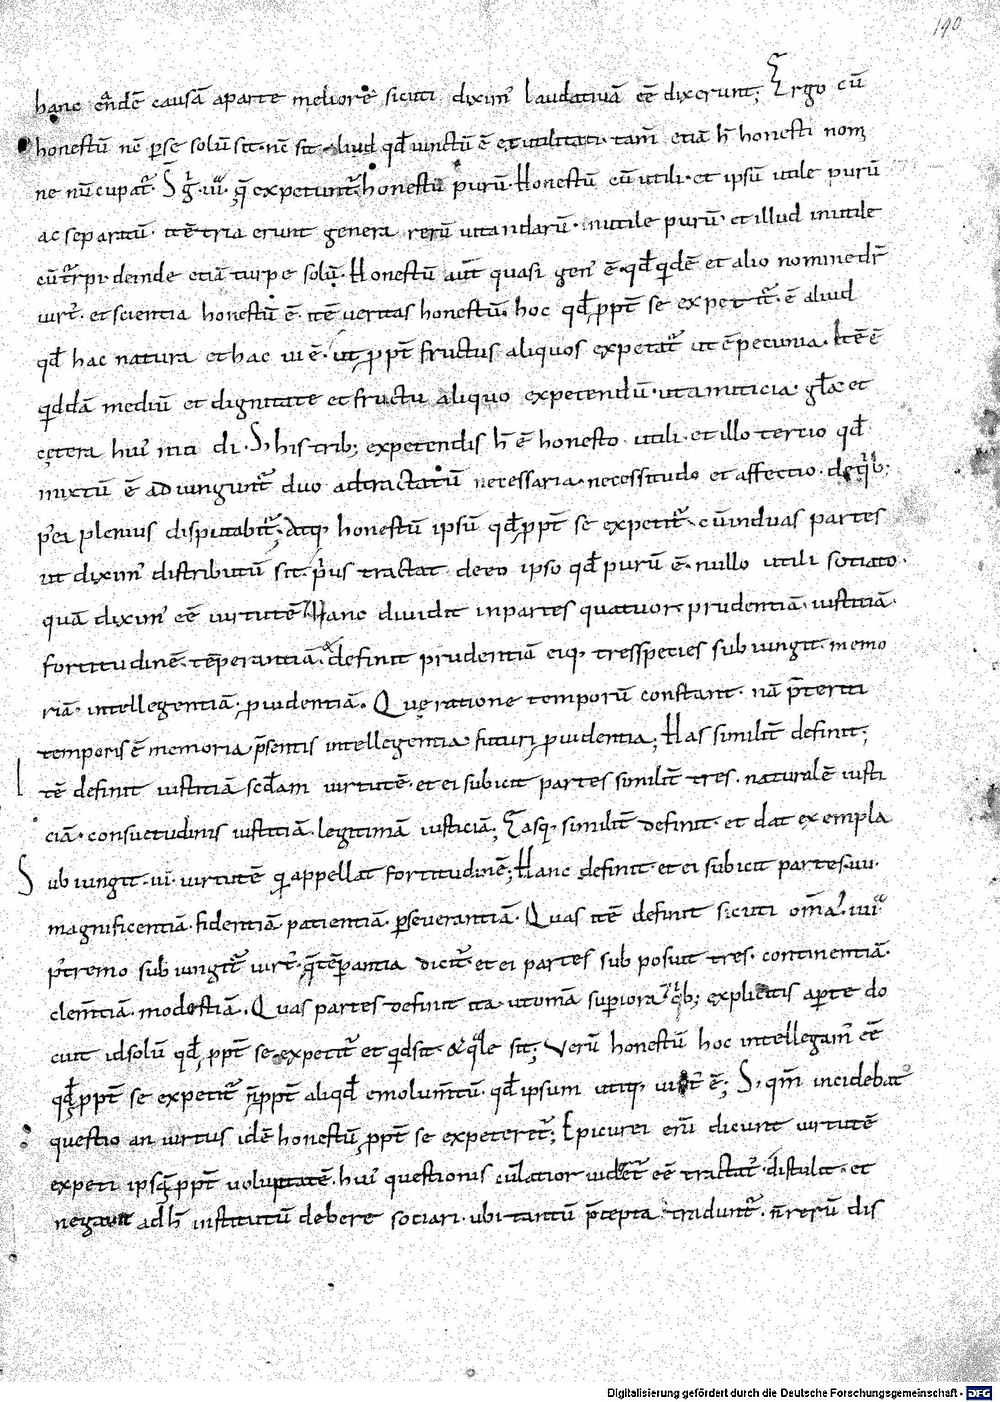 190
hanc eandē causā aparte meliorē sicuti dixim' laudatiuā eē dixerunt; Ergo cū
honestū nē p̱se solū sit· nē sit aliud qđ iunctū ē et utilitati· tam̄ etiā h̄ honesti nom
ne nūcupat̄· S; g̊· iiii· q̄ expetunt̄· honestū purū· Honestū cū utili· et ipsū utile purū
ac separatū· itē tria erunt genera rerū uitandarū· inutile purū· et illud inutile
cū turpi· deinde etiā turpe solū· Honestū aut̄ quasi gen' ē· qđ qidē et alio nomine dr̄
uirt'· et scientia honestū ē· itē ueritas honestū· hoc qđ ppt̄ se expetit̄· ē aliud
qđ hac natura et hac ui ē· ut ppt̄ fructus aliquos expetat̄ ut ē pecunia· Itē ē
qiddā mediū et dignitate et fructu aliquo expetendū· ut amicicia· gl̄a· et
cętera hui' modi· S; his trib; expetendis h̄ ē honesto utili· et illo tercio qđ
mixtū ē adiungunt̄ duo ad tractatū necessaria· necessitudo et affectio· de qib;
p'ea plenius disputabit̄; Atq; honestū ipsū qđ ppt̄ se expetit̄· cū in duas partes
ut dixim' distributū sit· p'us tractat de eo ipso qđ purū ē· nullo utili sociato·
quā dixim' eē uirtutē· Hanc diuidit in partes quatuor· prudentiā· iusticiā·
fortitudinē· tēperantiā· & definit prudentiā eiq; tres species subiungit· memo
riā· intellegentiā· puidentiā· Quę ratione temporū constant· nā p̄teriti
temporis ē memoria· p̄sentis intellegentia· futuri puidentia; Has similit̄ definit;
Itē definit iusticiā scđam uirtutē· et ei subicit partes similit̄ tres· naturalē iusti
ciā· consuetudinis iusticiā· legitimā iusticiā; Easq; similit̄ definit· et dat exempla
Subiungit· iii· uirtutē q̄ appellat fortitudinē; Hanc definit· et ei subicit partes iiii·
magnificentiā· fidentiā patientiā· p̱seuerantiā· Quas itē definit sicuti om̄a· iiii
p't̄remo subiungit̄ uirt'· q̄ tēp̱antia dicit̄· et ei partes sub posuit tres· continentiā·
clem̄tiā· modestiā· Quas partes definit ita ut om̄a supiora· qib; explicitis aperte do
cuit id solū qđ ppt̄ se expetit̄ et qid sit· & qale sit; Verū honestū hoc intellegam' eē
qđ ppt̄ se expetit̄ n̄ ppt̄ aliqđ emolum̄tū· qđ ipsum utiq; uirt' ē; S; qm̄ incidebat
questio an uirtus idē honestū ppt̄ se expeteret̄; Epicurei eni dicunt uirtutē
expeti ipsā ppt̄ uoluptatē· hui' questionis cūlatior uidet̄ eē tractat'· distulit· et
negauit ad h̄ institutū debere sociari· ubi tantū p̄cepta tradunt̄· n̄ rerū dis
Digitalisierung gefördert durch die Deutsche Forschungsgemeinschaft - DFG